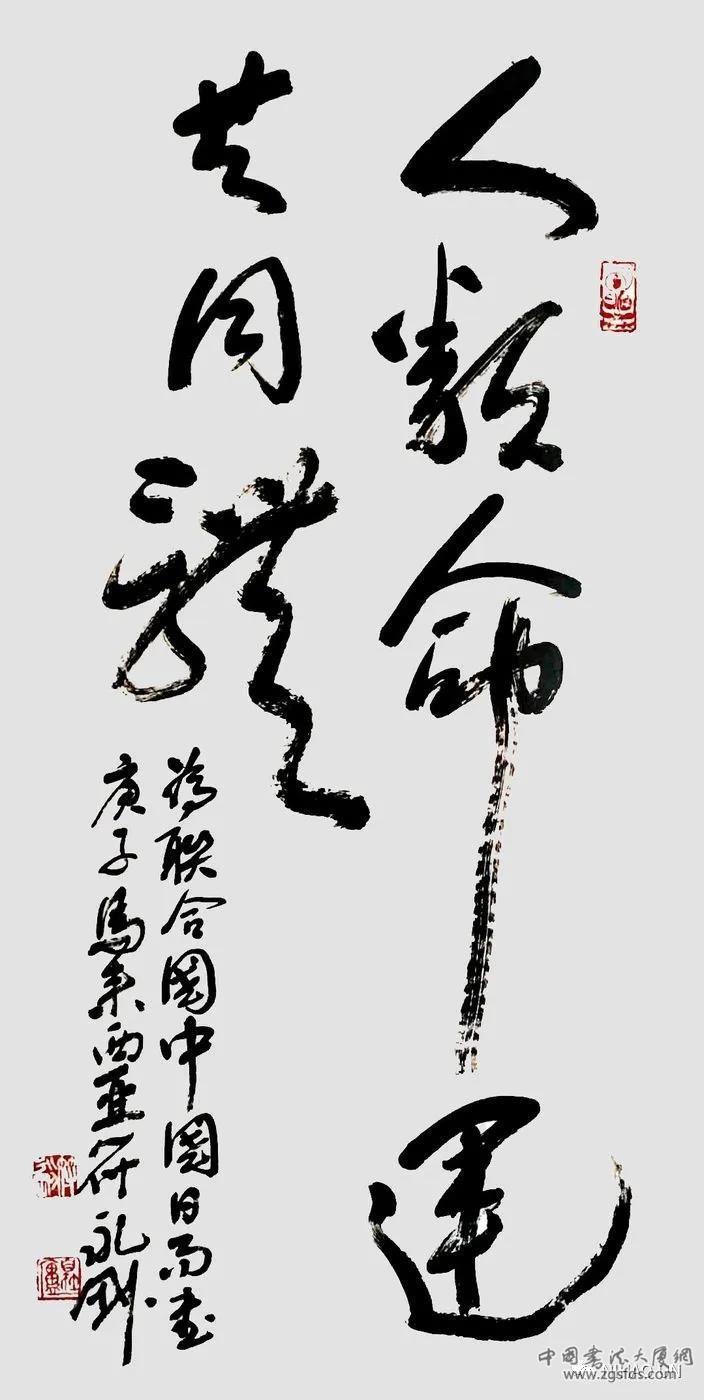 人類命運
共同體
為聯合國中國日而書
庚子馬來西亞符永刚
中國書法大厦網
www.zgsfds.com